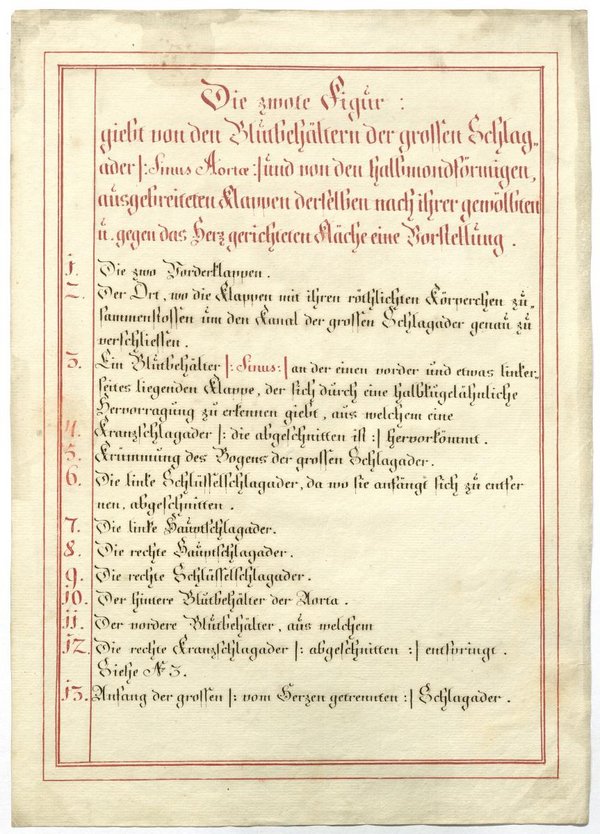 Die zwote Figur :
giebt von den Blutbehältern der grossen Schlag„
ader |: Sinus Aortæ :| und von den halbmondförmigen,
ausgebreiteten Klappen derselben nach ihrer gewölbten
u. gegen das Herz gerichteten Fläche eine Vorstellung .
1. Die zwo Vorderklappen .
2. Der Ort, wo die Klappen mit ihren röthlichten Körperchen zu„
sammenstossen um den Kanal der grossen Schlagader genau zu
verschliessen .
3. Ein Blutbehälter |: Sinus :| an der einen vorder und etwas linker„
seites liegenden Klappe, der sich durch eine halbkugelähnliche
Hervorragung zu erkennen giebt, aus welchem eine
4. Kranzschlagader |: die abgeschnitten ist :| hervorkömmt .
5. Krümmung des Bogens der grossen Schlagader .
6. Die linke Schlüsselschlagader, da wo sie anfängt sich zu entfer
nen, abgeschnitten .
7. Die linke Hauptschlagader.
8. Die rechte Hauptschlagader .
9. Die rechte Schlüsselschlagader.
10. Der hintere Blutbehälter der Aorta .
11. Der vordere Blutbehälter, aus welchem
12. Die rechte Kranzschlagader |: abgeschnitten :| entspringt .
Siehe N 3.
13. Anfang der grossen |: vom Herzen getrennten :| Schlagader .